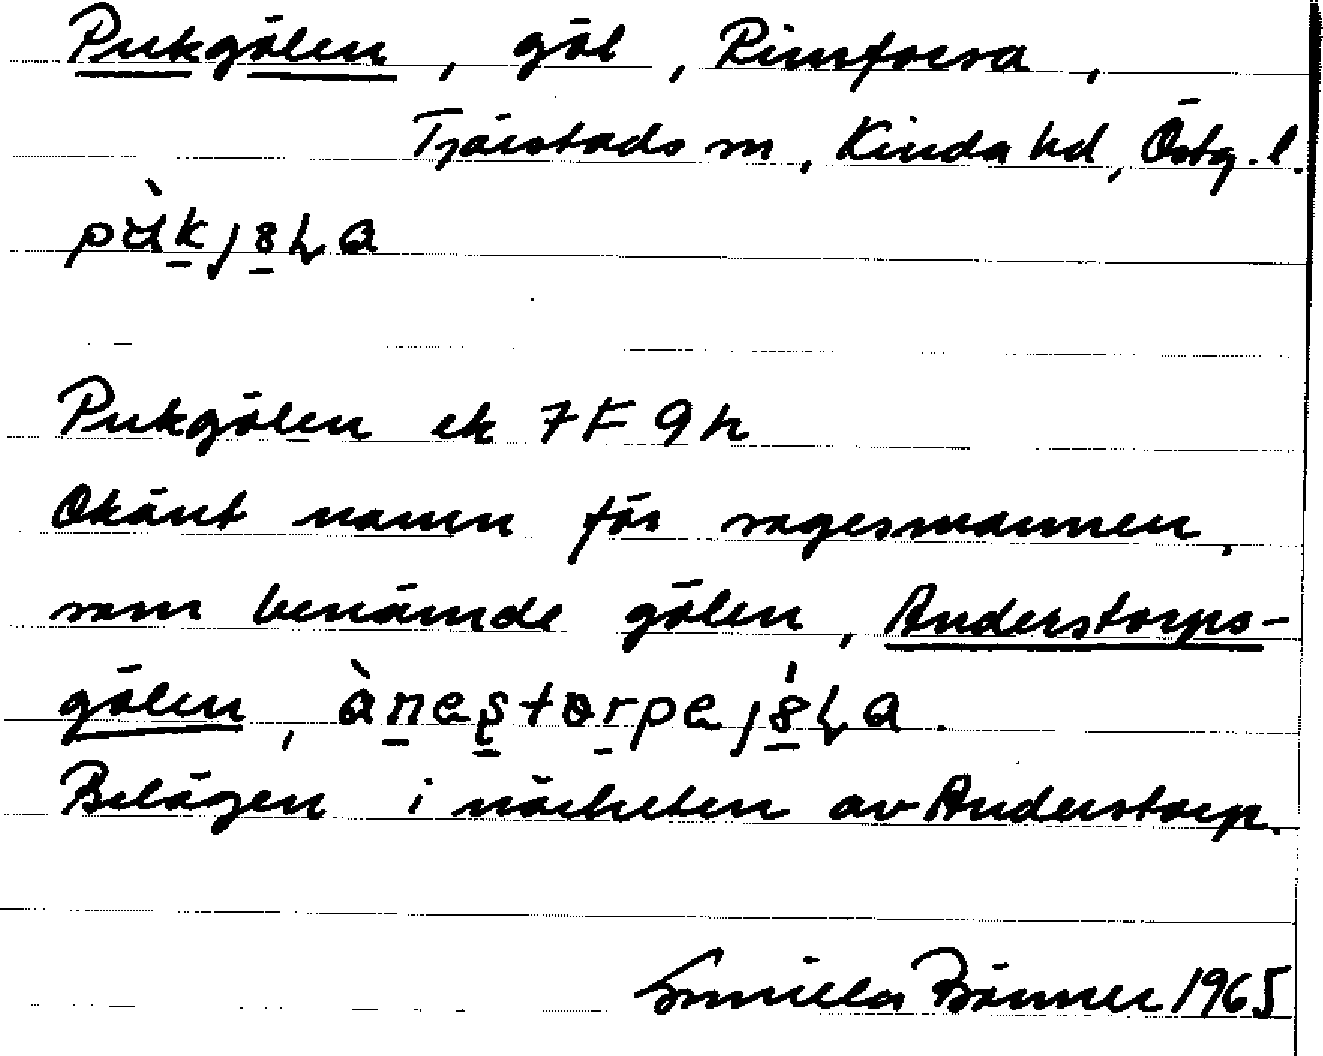 Pukgölen, göl, Rimforsa,
Tjärstads sn, Kinda hd, Östg. l.
Pukgölen ek 7F 9h
Okänt namn för sagesmannen,
som benämde gölen, Anderstorps-
gölen,
Belägen i närheten av Anderstorp.
Gunilla Bönner 1965